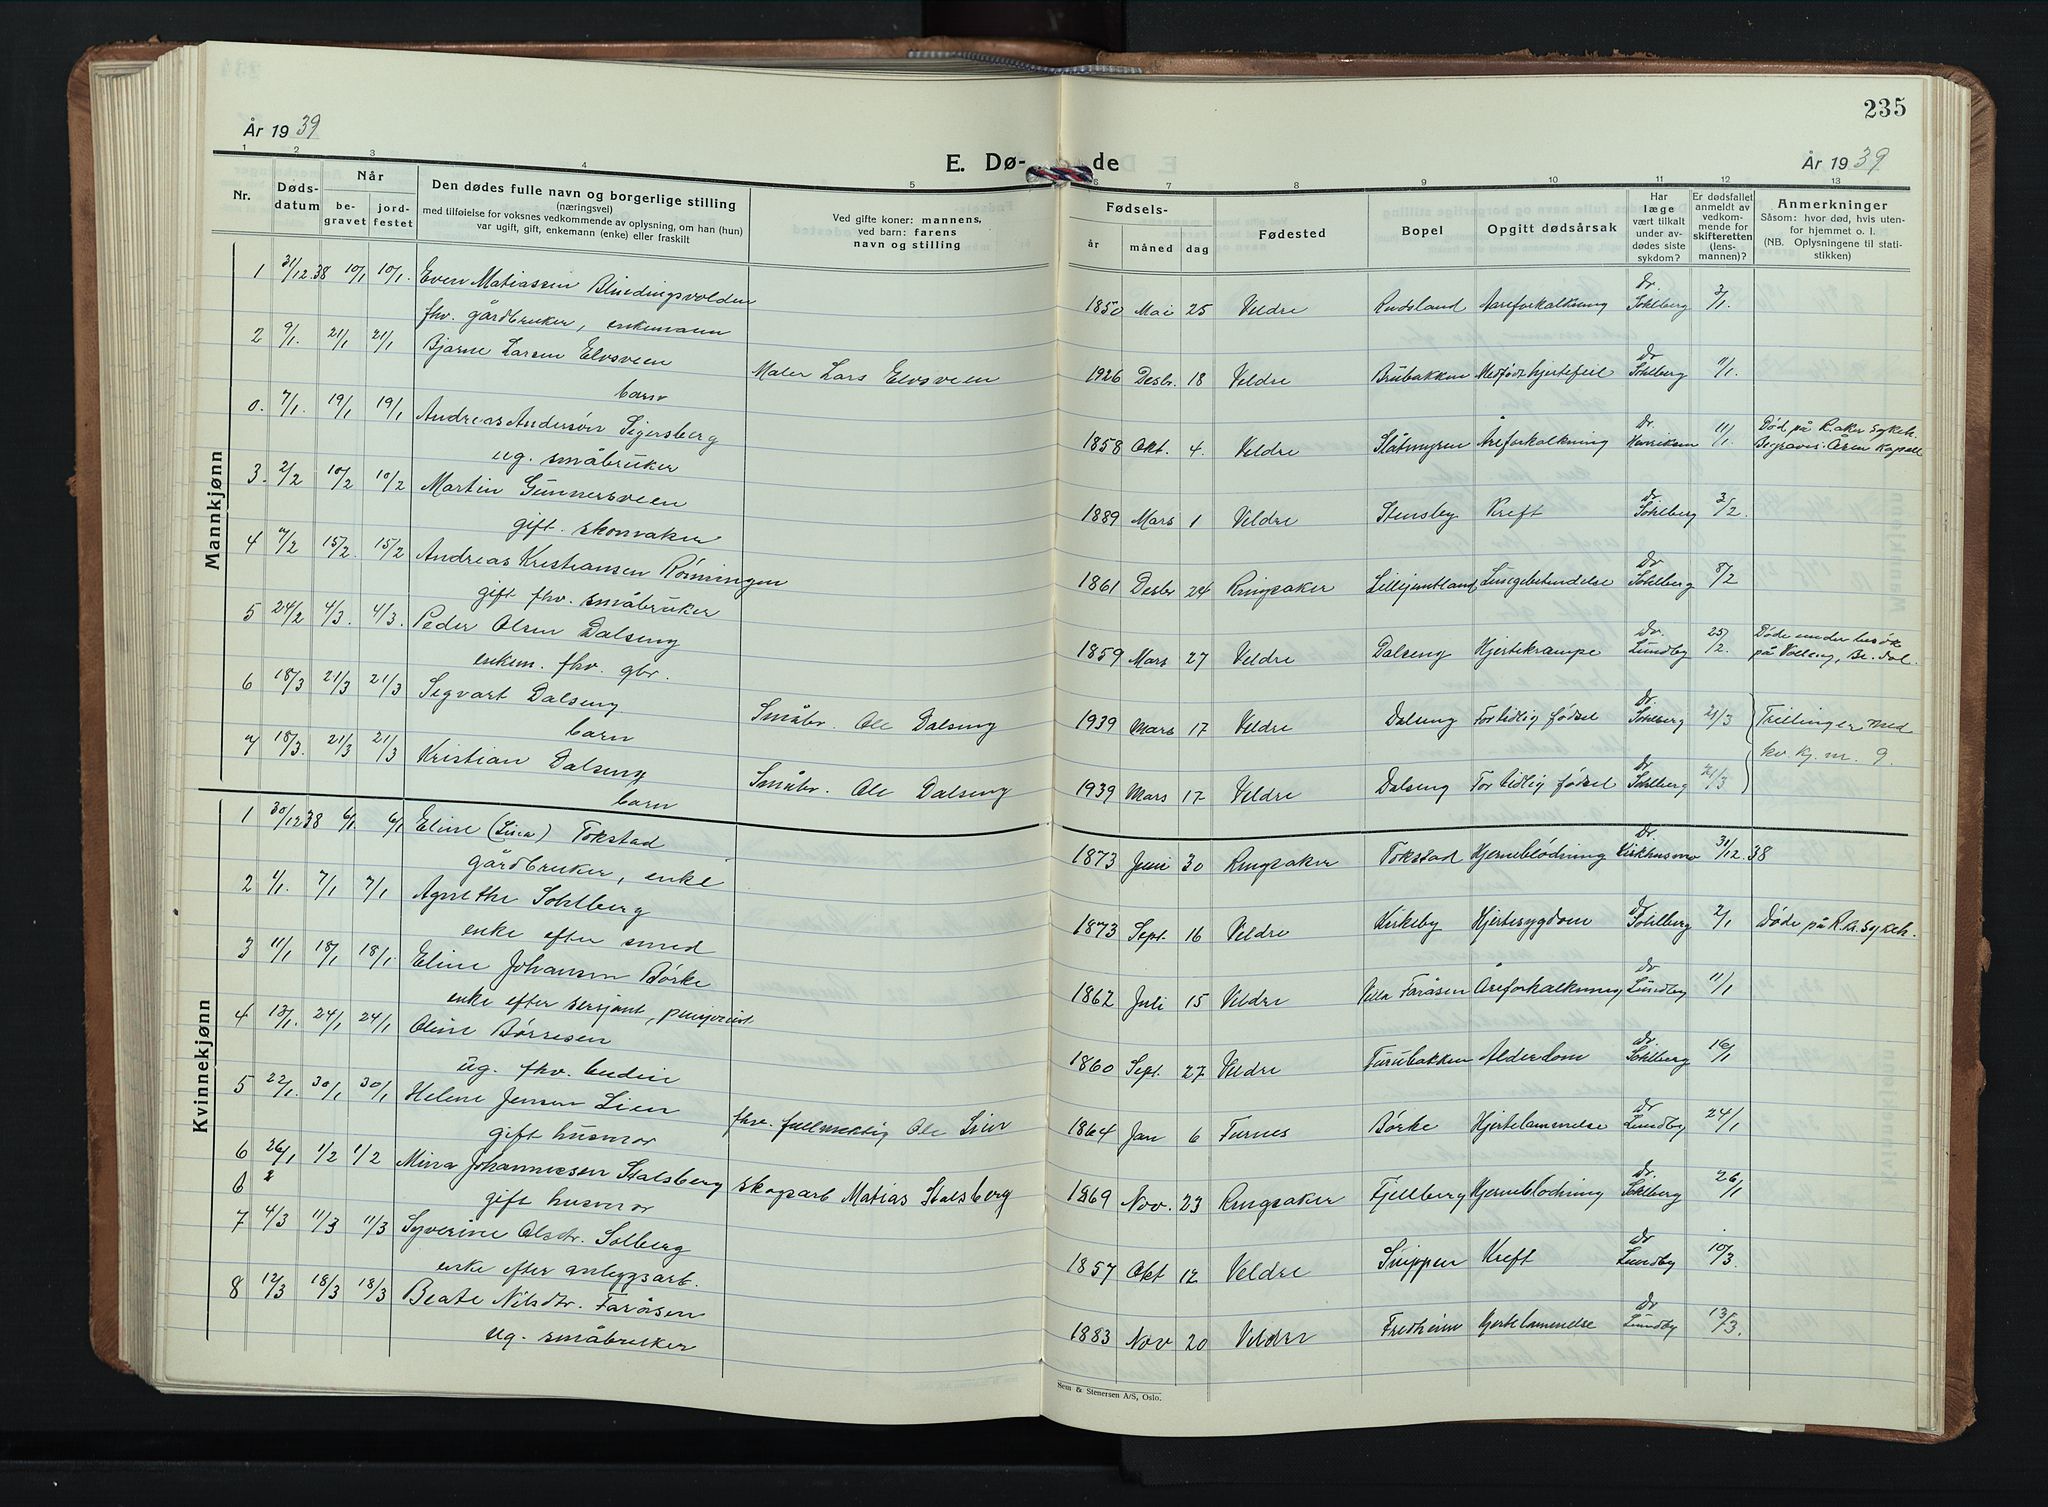 235
År 1939
E. Dø-
de
År 1939
1 2 3 4 5 6 7 8 9 10 11 12 13
Nr.
Døds-
datum
Når
be-
gravet
jord-
festet
Den dødes fulle navn og borgerlige stilling
(næringsvei)
med tilføielse for voksnes vedkommende av oplysning, om han (hun)
var ugift, gift, enkemann (enke) eller fraskilt
Ved gifte koner: mannens,
ved barn: farens
navn og stilling
Fødsels-
år måned dag
Fødested
Bopel
Opgitt dødsårsak
Har
læge
vært tilkalt
under av-
dødes siste
sykdom?
Er dødsfallet
anmeldt av
vedkom-
mende for
skifteretten
(lens-
mannen)?
Anmerkninger
Såsom: hvor død, hvis uten-
for hjemmet o. l.
(NB. Oplysningene til stati-
stikken)
Mannkjønn
1 31/12.38 10/1 10/1. Even Matiassen Blindingsvolden
fhv. gårdbruker, enkemann 1850 Mai 25 Veldre Rudsland Aareforkalkning Dr. Sohlberg 3/1.
2 9/1. 21/1 21/1 Bjarne Larsen Elvsveen
barn Maler Lars Elvsveen 1926 Desbr. 18 Veldre Brubakken Medfødt hjertefeil Dr Sohlberg 11/1.
0. 7/1. 19/1 19/1 Andreas Andersen Sigersberg
ug. småbruker 1858 Okt. 4. Veldre Slåtmyren Åreforkalkning Dr. Henriksen 11/1. Død på R.aker sykeh.
Begravet Åsen Kapell
3. 2/2 10/2 10/2 Martin Gunnersveen
gift. skomaker 1889 Mars 1 Veldre Stensby Kreft Dr Sohlberg 3/2.
4 7/2 15/2. 15/2 Andreas Kristiansen Rønningen
gift fhv. småbruker 1861 Desbr 24 Ringsaker Lillejemtland Lungebetendelse Dr Sohlberg 8/2
5 24/2 4/3. 4/3. Peder Olsen Dalseng
enkem. fhv. gbr. 1859 Mars 27 Veldre Dalseng Hjertekrampe Dr. Lundby 25/2. Døde under besøk
på Volleng, Br.dal.
6 18/3 21/3 21/3 Sigvart Dalseng
barn Småbr. Ole Dalseng 1939 Mars 17 Veldre Dalseng For tidlig fødsel Dr Sohlberg 21/3 Trillinger med
7 18/3. 21/3 21/3 Kristian Dalseng
barn Småbr. Ole Dalseng 1939 Mars 17 Veldre Dalseng For tidlig fødsel Dr Sohlberg 21/3 kv. kj. nr. 9.
Kvinnekjønn
1 30/12 38 6/1. 6/1 Eline (Lina) Tokstad
gårdbruker, enke 1873 Juni 30 Ringsaker Tokstad Hjerneblødning Dr. Kirkhusmo 31/12.38
2 4/1. 7/1 7/1 Agnethe Sohlberg
enke efter smed 1873 Sept. 16 Veldre Kirkeby Hjertesygdom Dr Sohlberg 2/1 Døde på R.a. sykeh.
3 11/1 18/1 18/1. Eline Johansen Børke
enke efter sersjant, pensjonist 1862 Juli 15 Veldre Villa Faråsen Åreforkalkning Dr Lundby 11/1
4 13/1. 24/1 24/1 Oline Børresen
ug. fhv. budeie 1860 Sept. 27 Veldre Furubakken Alderdom Dr. Sohlberg 16/1
5 22/1. 30/1 30/1 Helene Jensen Lien
gift husmor fhv. fullmektig Ole Lien 1864 Jan 6 Furnes Børke Hjertelammelse Dr Lundby 24/1
6 26/1 1/2 1/2 Mina Johannesen Stalsberg
gift husmor skogsarb Matias Stalsberg 1869 Nov. 23 Ringsaker Fjellberg Hjerneblødning Dr. Sohlberg 26/1
6 2
7 4/3 11/3 11/3 Syverine Olsdtr. Solberg
enke efter anleggsarb. 1857 Okt 12 Veldre Snippen Kreft Dr Lundby 10/3
8 12/3 18/3 18/3 Beate Nilsdtr. Faråsen
ug. småbruker 1883 Nov 20 Veldre Fredheim Hjertelammelse Dr Lundby 13/3.
Sem & Stenersen A/S, Oslo.